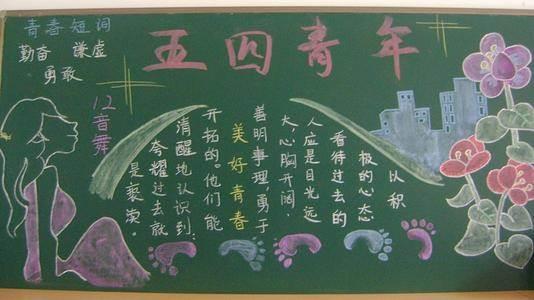 五四青年
青春短词
勤奋 谦虚
勇敢
12音舞
以积
极的心态
看待过去的
人应是目光远
大,心胸开阔.
善明事理,勇于
美好青春
开拓的。他们能
清醒地认识到:
夸耀过去就
是衰